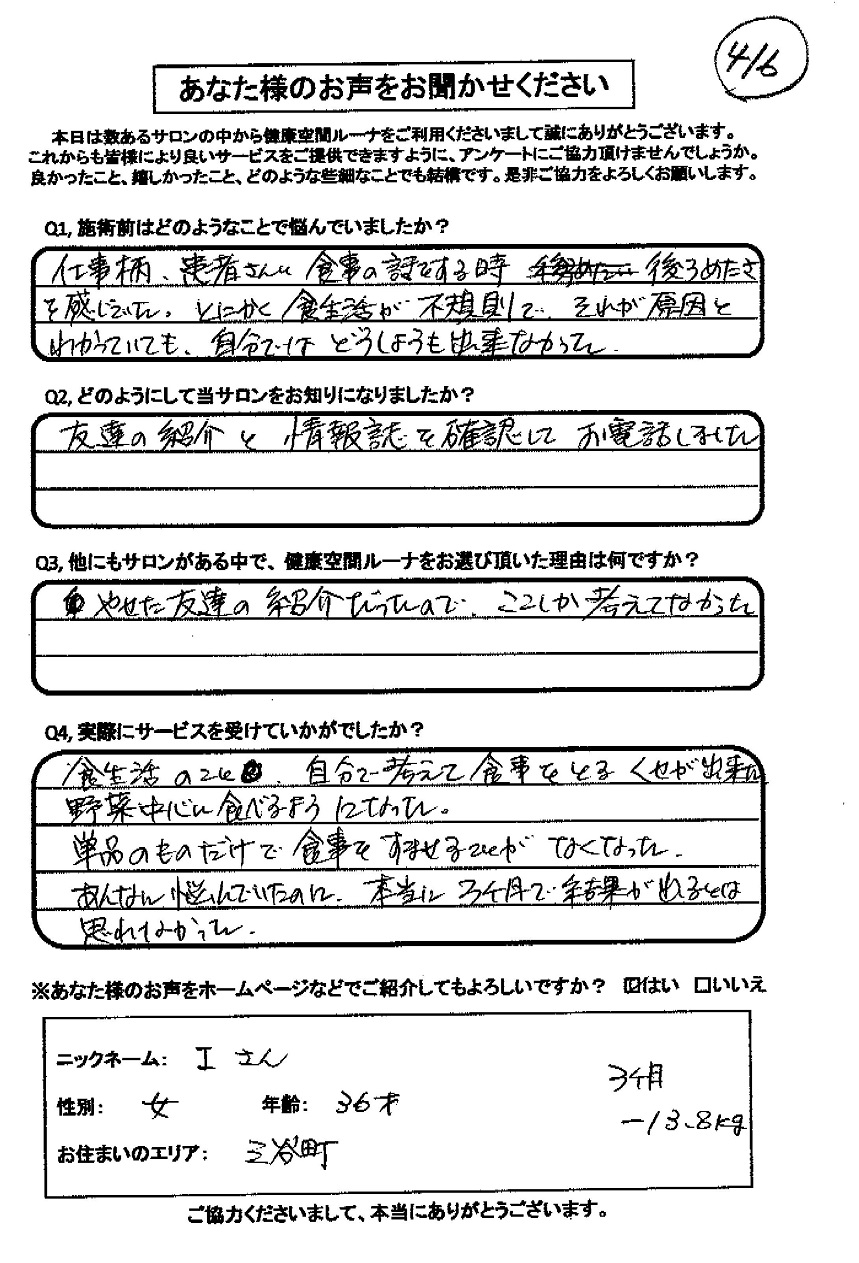 4/6
あなた様のお声をお聞かせください
本日は数あるサロンの中から健康空間ルーナをご利用くださいまして誠にありがとうございます。
これからも皆様により良いサービスをご提供できますように、アンケートにご協力頂けませんでしょうか。
良かったこと、嬉しかったこと、どのような些細なことでも結構です。是非ご協力をよろしくお願いします。
Q1, 施術前はどのようなことで悩んでいましたか？
仕事柄、患者さんに食事の話をする時 後ろめたさ
を感じていた。とにかく食生活が不規則で、それが原因と
わかっていても、自分ではどうしようも出来なかった。
Q2, どのようにして当サロンをお知りになりましたか？
友達の紹介と情報誌を確認してお電話しました
Q3, 他にもサロンがある中で、健康空間ルーナをお選び頂いた理由は何ですか？
やせた友達の紹介だったので、ここしか考えてなかった
Q4, 実際にサービスを受けていかがでしたか？
食生活のこと、自分で考えて食事をとるくせが出来た
野菜中心に食べるようになった。
単品のものだけで食事をすませることがなくなった。
あんなに悩んでいたのに、本当に3ヶ月で結果が出るとは
思れなかった。
※あなた様のお声をホームページなどでご紹介してもよろしいですか？ ☑はい □いいえ
ニックネーム： Iさん
3ヶ月
性別： 女 年齢： 36才
-13.8kg
お住まいのエリア： 三谷町
ご協力くださいまして、本当にありがとうございます。